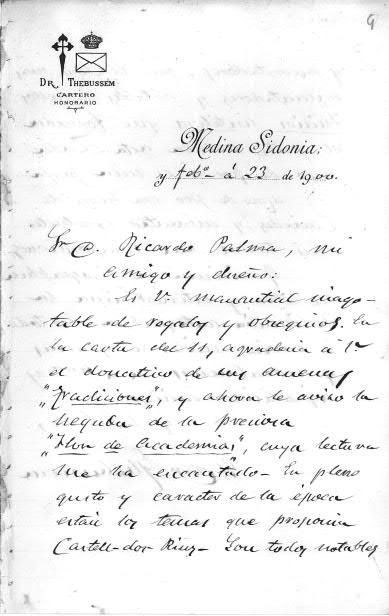 9
DR. THEBUSSEM
CARTERO
HONORARIO
Medina Sidonia:
y febº á 23 de 1900.
Sr D. Ricardo Palma, mi
amigo y dueño:
Es V. manantial inago-
table de regalos y obsequios. En
la carta del 11, agradecia á V.
el donativo de sus amenas
"Tradiciones", y ahora le aviso la
llegada de la preciosa
"Flor de Academias", cuya lectura
me ha encantado— En pleno
gusto y caracter de la época
están los temas que proponia
Castell-dos-Rius— Son todos notables